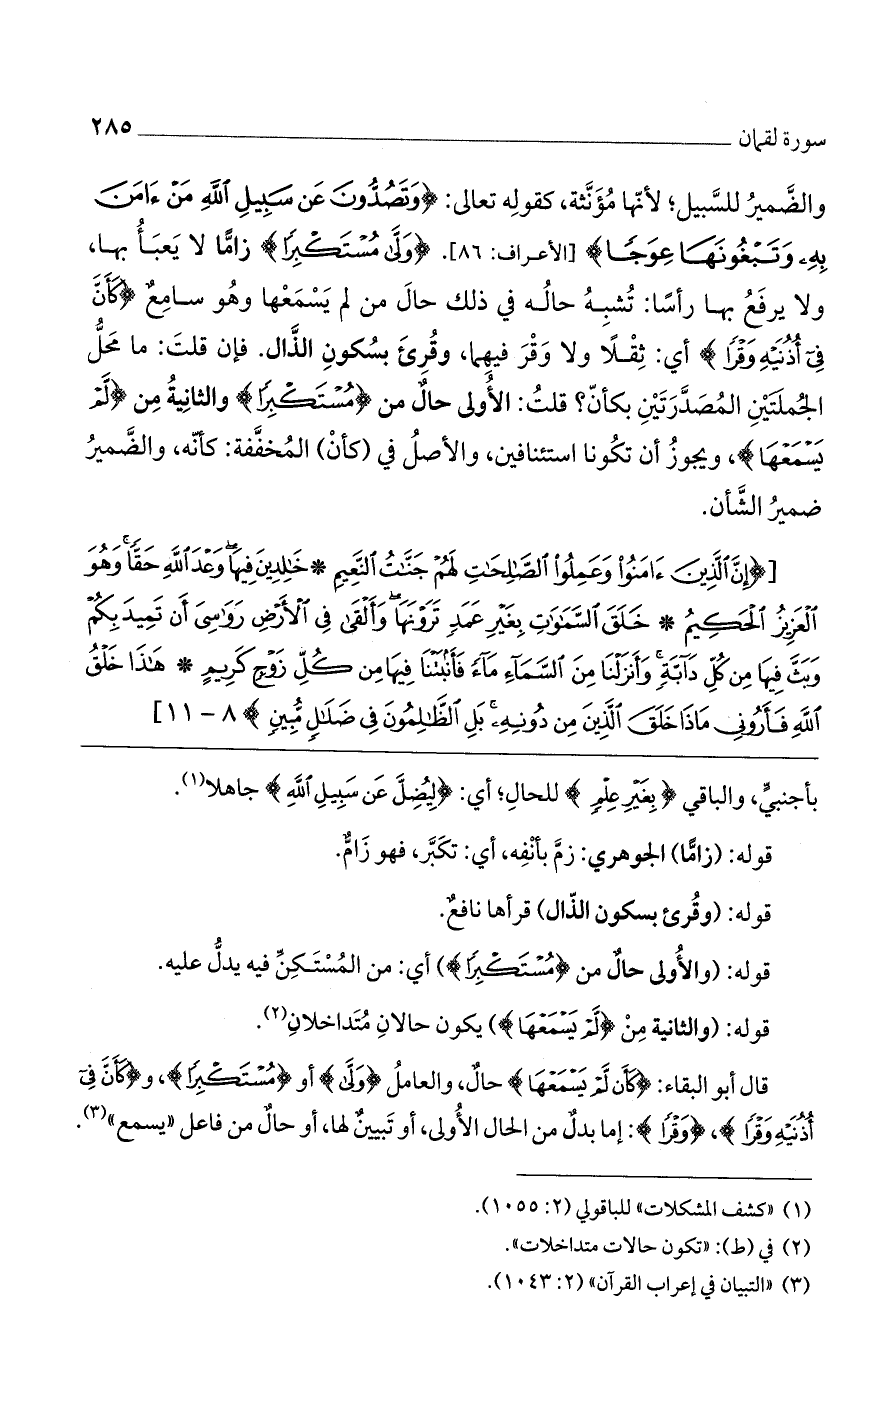 سورة لقمان ٢٨٥
والضَّميرُ للسَّبيل؛ لأنَّها مُؤَنَّثة، كقولِه تعالى: ﴿وَتَصُدُّونَ عَن سَبِيلِ ٱللَّهِ مَنْ ءَامَنَ
بِهِۦ وَتَبْغُونَهَا عِوَجًا﴾ [الأعراف: ٨٦]. ﴿وَلَّىٰ مُسْتَكْبِرًا﴾ زامًّا لا يَعبَأُ بها،
ولا يرفَعُ بها رأسًا: تُشبِهُ حالُه في ذلك حالَ من لم يَسْمَعْها وهُو سامِعٌ ﴿كَأَنَّ
فِىٓ أُذُنَيْهِ وَقْرًا﴾ أي: ثِقْلًا ولا وَقْرَ فيهِما، وقُرِئَ بسُكونِ الذَّال. فإن قلتَ: ما مَحَلُّ
الجُملَتَيْنِ المُصَدَّرَتَيْنِ بكأنّ؟ قلتُ: الأُولى حالٌ من ﴿مُسْتَكْبِرًا﴾ والثانيةُ مِن ﴿لَّمْ
يَسْمَعْهَا﴾، ويجوزُ أن تكُونا استئنافين، والأصلُ في (كأنْ) المُخفَّفة: كأنّه، والضَّميرُ
ضميرُ الشَّأن.
[﴿إِنَّ ٱلَّذِينَ ءَامَنُوا۟ وَعَمِلُوا۟ ٱلصَّٰلِحَٰتِ لَهُمْ جَنَّٰتُ ٱلنَّعِيمِ * خَٰلِدِينَ فِيهَا ۖ وَعْدَ ٱللَّهِ حَقًّا ۚ وَهُوَ
ٱلْعَزِيزُ ٱلْحَكِيمُ * خَلَقَ ٱلسَّمَٰوَٰتِ بِغَيْرِ عَمَدٍ تَرَوْنَهَا ۖ وَأَلْقَىٰ فِى ٱلْأَرْضِ رَوَٰسِىَ أَن تَمِيدَ بِكُمْ
وَبَثَّ فِيهَا مِن كُلِّ دَآبَّةٍ ۚ وَأَنزَلْنَا مِنَ ٱلسَّمَآءِ مَآءً فَأَنۢبَتْنَا فِيهَا مِن كُلِّ زَوْجٍ كَرِيمٍ * هَٰذَا خَلْقُ
ٱللَّهِ فَأَرُونِى مَاذَا خَلَقَ ٱلَّذِينَ مِن دُونِهِۦ ۚ بَلِ ٱلظَّٰلِمُونَ فِى ضَلَٰلٍ مُّبِينٍ﴾ ٨ - ١١]
بأجنبيٍّ، والباقي ﴿بِغَيْرِ عِلْمٍ﴾ للحالِ؛ أي: ﴿لِيُضِلَّ عَن سَبِيلِ ٱللَّهِ﴾ جاهلا(١).
قوله: (زامًّا) الجوهري: زمَّ بأنْفِه، أي: تكَبَّر، فهو زَامٌّ.
قوله: (وقُرئ بسكون الذّال) قرأها نافعٌ.
قوله: (والأُولى حالٌ من ﴿مُسْتَكْبِرًا﴾) أي: من المُسْتَكِنِّ فيه يدلُّ عليه.
قوله: (والثانية مِنْ ﴿لَّمْ يَسْمَعْهَا﴾) يكون حالانِ مُتَداخلانِ(٢).
قال أبو البقاء: ﴿كَأَن لَّمْ يَسْمَعْهَا﴾ حالٌ، والعاملُ ﴿وَلَّىٰ﴾ أو ﴿مُسْتَكْبِرًا﴾، و﴿كَأَنَّ فِىٓ
أُذُنَيْهِ وَقْرًا﴾، ﴿وَقْرًا﴾: إما بدلٌ من الحال الأُولى، أو تَبيينٌ لها، أو حالٌ من فاعل «يسمع»(٣).
(١) «كشف المشكلات» للباقولي (٢: ١٠٥٥).
(٢) في (ط): «تكون حالات متداخلات».
(٣) «التبيان في إعراب القرآن» (٢: ١٠٤٣).